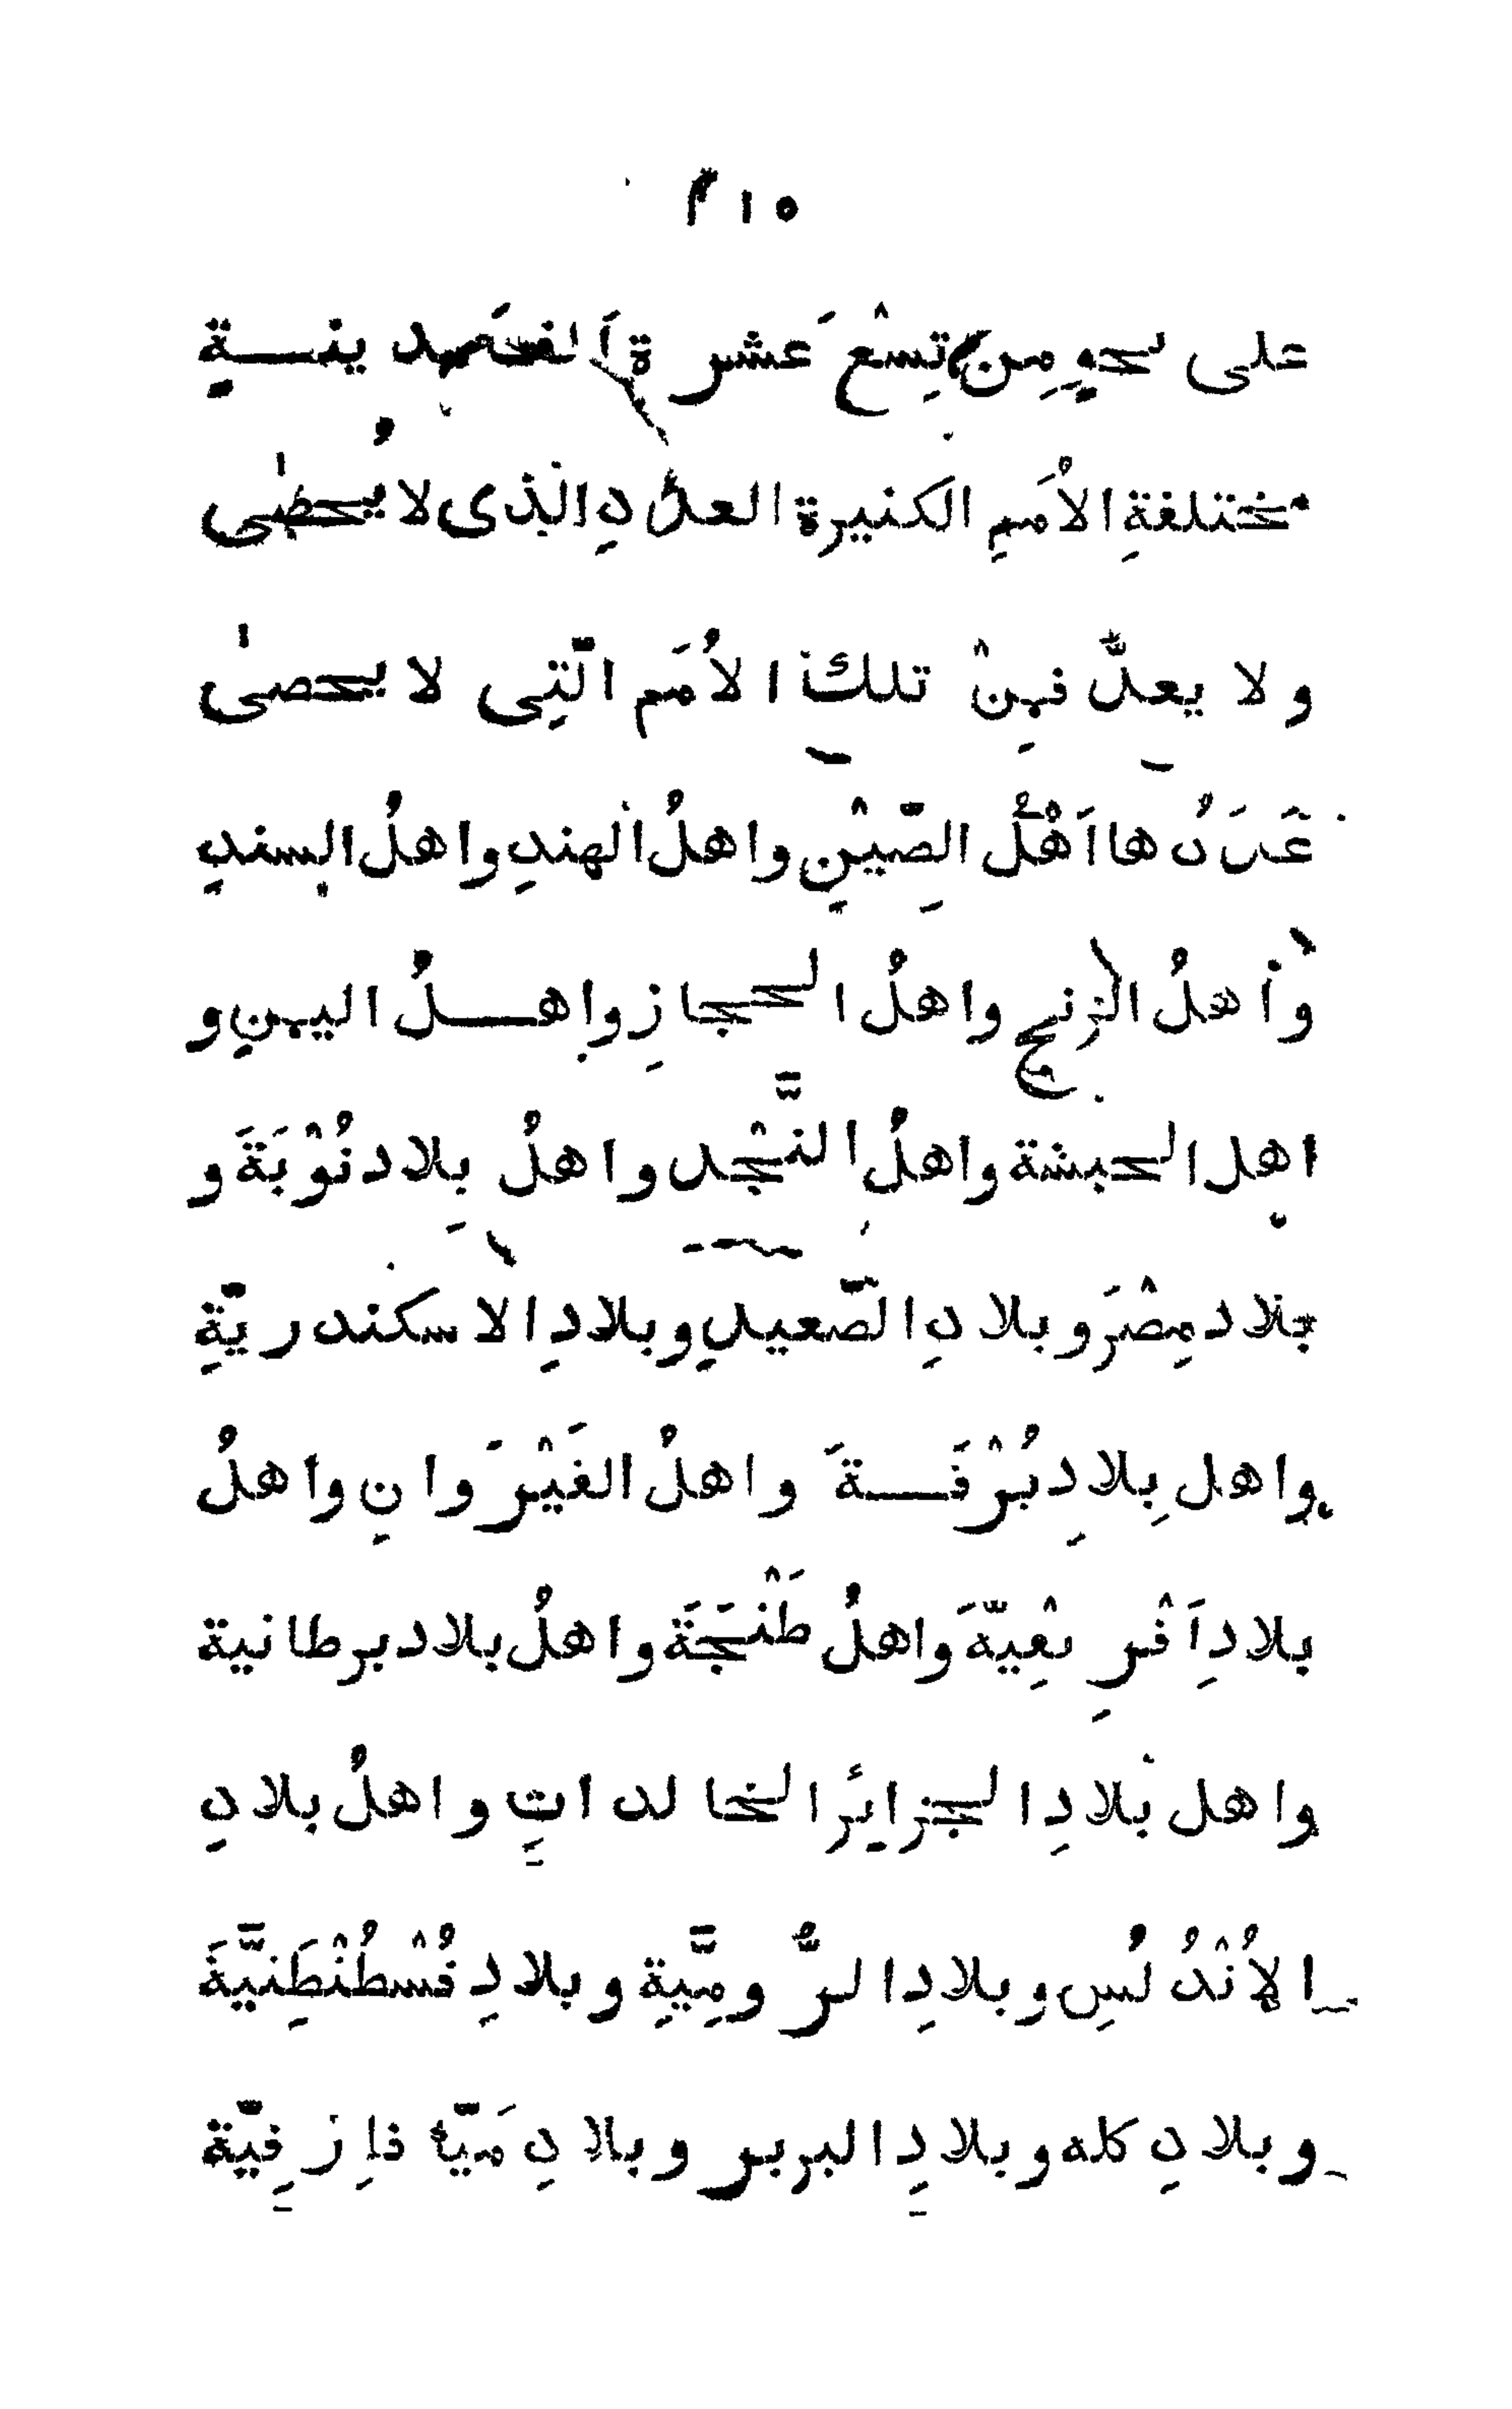 ٢١٥
على نحوٍ مِن تِسْعَ عشرة اَلف مدينــةٍ
مختلفةِ الاُمَمِ الكثيرة العددِ الّذى لا يُحصٰى
ولا يعدّ فمِنْ تلك الاُمَم الّتِى لا يحصىٰ
عَدَدُها اَهْلُ الصِّيْنِ واهلُ الهندِ واهلُ السندِ
واهلُ الزنج واهلُ الحجازِ واهــلُ اليمنِ و
اهل الحبشة واهلُ النَّجْد واهلُ بِلاد نُوْبَةَ و
بلاد مِصْرَ وبلادِ الصّعيدِ وبلادِ الاسكندريّةِ
واهل بِلادِ بُرْقَــةَ واهلُ القَيْرَوانِ واهلُ
بلادِ اَفْرِيْقِيّةَ واهلُ طَنْجَةَ واهلُ بلاد برطانية
واهل بلادِ الجزائرِ الخالداتِ واهلُ بلادِ
الاُنْدُلُسِ وبلادِ الرُّومِيَّةِ وبلادِ قُسْطُنْطَنِيَّةَ
وبلادِ كله وبلادِ البربر وبلادِ مَيّا فارقِيّة